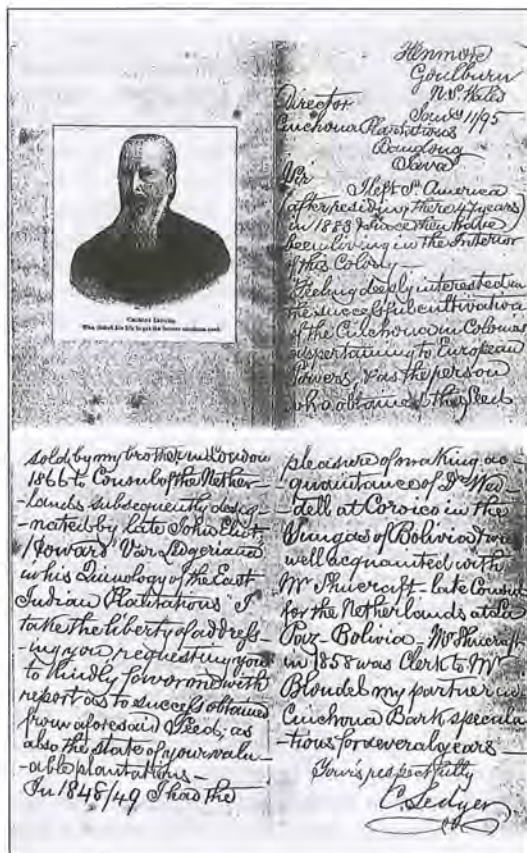 CHARLES LEDGER
Who risked his life to get the famous cinchona seed.
Henmore
Goulburn
N.S. Wales
11/95
Director
Cinchona Plantations
Java
Sir
I left S. America
(after residing there 47 years)
in 1883 & since then have
been living in the Interior
of this Colony —
Feeling deeply interested in
the successful cultivation
of the Cinchona in Colonies
appertaining to European
Powers, & as the person
who obtained the Seed
sold by my brother in London
1866 to Consul of the Nether-
-lands subsequently desig-
-nated by late John Eliot
Howard Var Ledgeriana
in his Quinology of the East
Indian Plantations I
take the liberty of address-
-ing you requesting you
to kindly favor me with
report as to success obtained
from aforesaid Seed; as
also the state of your valu-
-able plantations —
In 1848/49 I had the
pleasure of making ac-
-quaintance of Dr Wed-
-dell at Coroico in the
Yungas of Bolivia & was
well acquainted with
Mr - late Consul
for the Netherlands at La
Paz - Bolivia - Mr
in 1858 was Clerk to Mr
Blondel my partner in
Cinchona Bark specula-
-tions for several years —
Yours respectfully
C. Ledger